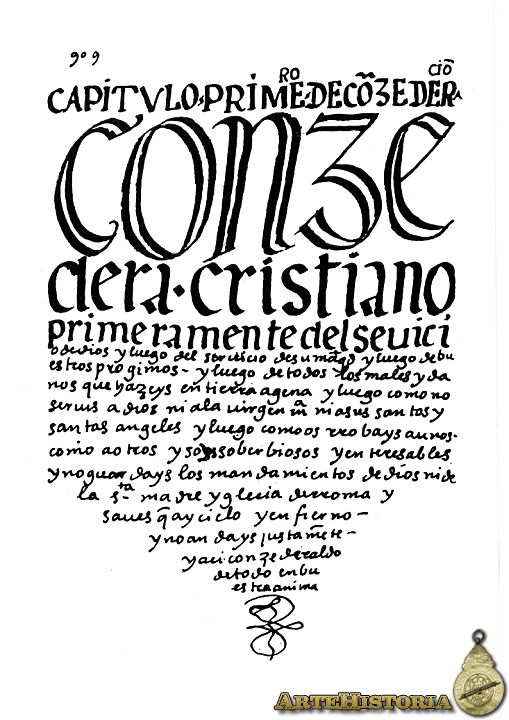 9o9
CAPÍTVLO·PRIMERO·DE CŌZEDERACIŌ
conze
dera·cristiano
primeramente del seuici
o de dios y luego del seruicio de su magd y luego de bu
estros progimos- y luego de todos los males y da
nos que hazeys en tierra agena y luego como no
seruis a dios ni a la uirgen ma ni a sus santos y
santas angeles y luego como os rrobays a unos-
como a otros y soys soberbiosos y enteresables
y no guardays los mandamientos de dios ni de
la sta madre yglecia de rroma y
saues q̄ ay cielo y enfierno-
y no andays justamēte-
y aci conzederaldo
de todo en bu
estra anima
ARTEHISTORIA